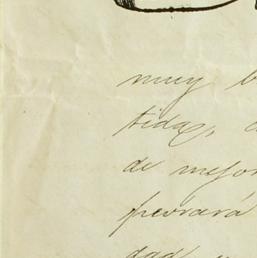 muy b
tida,
de mejor
peorará
dad